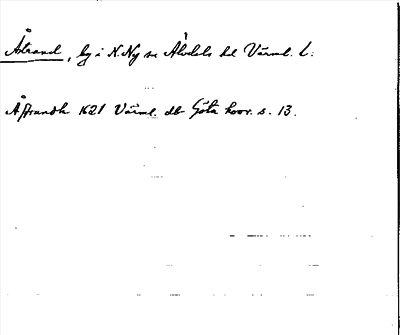 Åstrand, by i N. Ny sn Älvdals hd Värml. l.
Åstrandh 1621 Värml. db Göta hovr. s. 13.